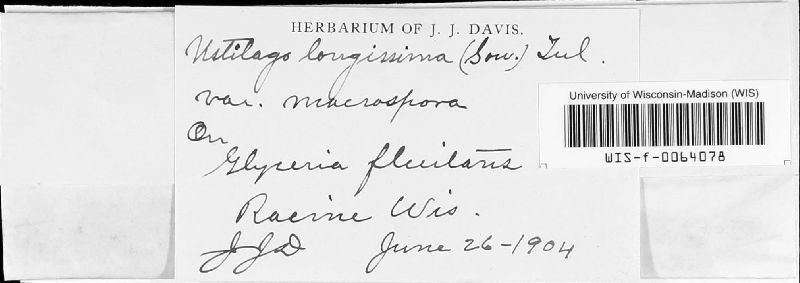 HERBARIUM OF J. J. DAVIS.
Ustilago longissima (Sow.) Tul.
var. macrospora
On
Glyceria fluitans
Racine Wis.
JJD June 26-1904
University of Wisconsin-Madison (WIS)
WIS-f-0064078